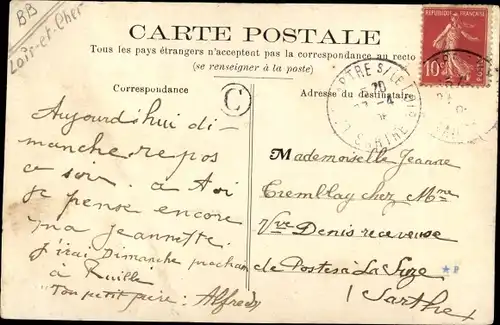 BB
Loir-et-Cher
CARTE POSTALE
Tous les pays étrangers n'acceptent pas la correspondance au recto
(se renseigner à la poste)
REPUBLIQUE FRANÇAISE
10
Correspondance
C
Adresse du destinataire
SARTHE
Aujourd'hui di-
manche repos
ce soir. a toi
je pense encore
ma jeannette.
j'irai Dimanche prochain
à Ruillé
"Ton petit père: Alfred"
Mademoiselle Jeanne
Tremblay chez Mme
Vve Denis receveuse
de Postes à La Suze
(Sarthe)